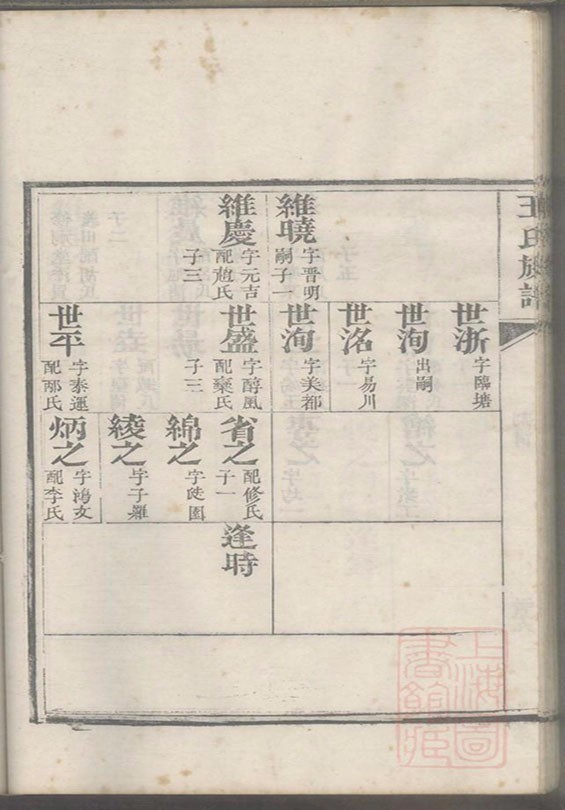 王氏族譜
維曉
字晋明
嗣子一
維慶
字元吉
配趙氏
子三
世浙
字臨塘
世洵
出嗣
世洺
字易川
世洵
字美都
世盛
字醇風
配棗氏
子三
世平
字泰運
配邴氏
省之
配修氏
子一
綿之
綾之
炳之
字鴻文
配李氏
逢時
上海圖
書館藏